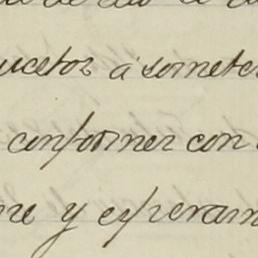 ucetos á someter
conformes con
re y esperam